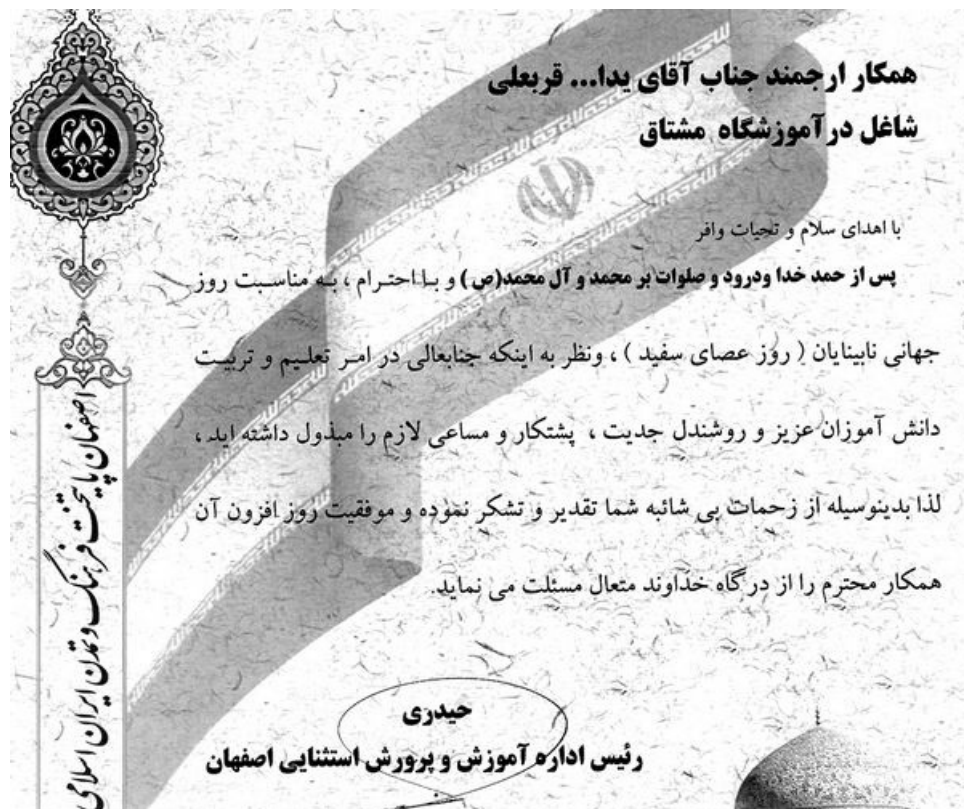 همکار ارجمند جناب آقای یدا... قربعلی
شاغل در آموزشگاه مشتاق
با اهدای سلام و تحیات وافر
پس از حمد خدا ودرود و صلوات بر محمد و آل محمد(ص) و با احترام ، به مناسبت روز
جهانی نابینایان ( روز عصای سفید ) ، ونظر به اینکه جنابعالی در امر تعلیم و تربیت
دانش آموزان عزیز و روشندل جدیت ، پشتکار و مساعی لازم را مبذول داشته اید ،
لذا بدینوسیله از زحمات بی شائبه شما تقدیر و تشکر نموده و موفقیت روز افزون آن
همکار محترم را از درگاه خداوند متعال مسئلت می نماید.
حیدری
رئیس اداره آموزش و پرورش استثنایی اصفهان
اصفهان پایتخت فرهنگ و تمدن ایران اسلامی